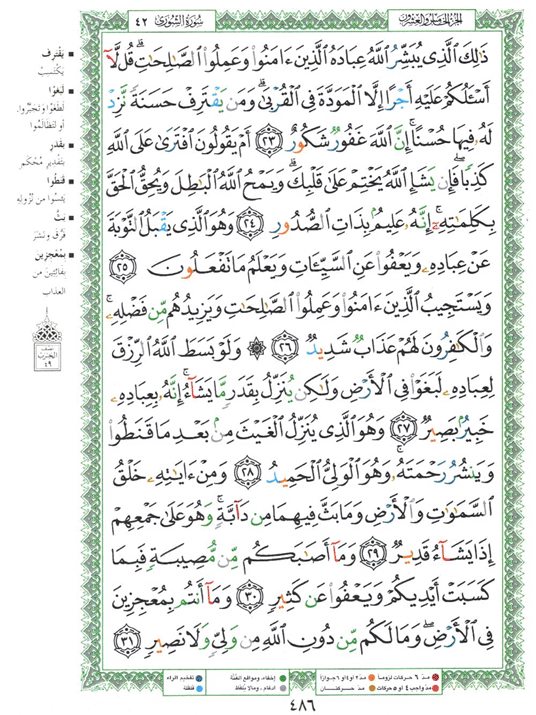 الجزء الخامس والعشرون
سورة الشورى
٤٢
ذَٰلِكَ ٱلَّذِى يُبَشِّرُ ٱللَّهُ عِبَادَهُ ٱلَّذِينَ ءَامَنُوا۟ وَعَمِلُوا۟ ٱلصَّٰلِحَٰتِ ۗ قُل لَّآ
أَسْـَٔلُكُمْ عَلَيْهِ أَجْرًا إِلَّا ٱلْمَوَدَّةَ فِى ٱلْقُرْبَىٰ ۗ وَمَن يَقْتَرِفْ حَسَنَةً نَّزِدْ
لَهُۥ فِيهَا حُسْنًا ۚ إِنَّ ٱللَّهَ غَفُورٌ شَكُورٌ ٢٣ أَمْ يَقُولُونَ ٱفْتَرَىٰ عَلَى ٱللَّهِ
كَذِبًا ۖ فَإِن يَشَإِ ٱللَّهُ يَخْتِمْ عَلَىٰ قَلْبِكَ ۗ وَيَمْحُ ٱللَّهُ ٱلْبَٰطِلَ وَيُحِقُّ ٱلْحَقَّ
بِكَلِمَٰتِهِۦٓ ۚ إِنَّهُۥ عَلِيمٌۢ بِذَاتِ ٱلصُّدُورِ ٢٤ وَهُوَ ٱلَّذِى يَقْبَلُ ٱلتَّوْبَةَ
عَنْ عِبَادِهِۦ وَيَعْفُوا۟ عَنِ ٱلسَّيِّـَٔاتِ وَيَعْلَمُ مَا تَفْعَلُونَ ٢٥
وَيَسْتَجِيبُ ٱلَّذِينَ ءَامَنُوا۟ وَعَمِلُوا۟ ٱلصَّٰلِحَٰتِ وَيَزِيدُهُم مِّن فَضْلِهِۦ ۚ
وَٱلْكَٰفِرُونَ لَهُمْ عَذَابٌ شَدِيدٌ ٢٦ ۞ وَلَوْ بَسَطَ ٱللَّهُ ٱلرِّزْقَ
لِعِبَادِهِۦ لَبَغَوْا۟ فِى ٱلْأَرْضِ وَلَٰكِن يُنَزِّلُ بِقَدَرٍ مَّا يَشَآءُ ۚ إِنَّهُۥ بِعِبَادِهِۦ
خَبِيرٌۢ بَصِيرٌ ٢٧ وَهُوَ ٱلَّذِى يُنَزِّلُ ٱلْغَيْثَ مِنۢ بَعْدِ مَا قَنَطُوا۟
وَيَنشُرُ رَحْمَتَهُۥ ۚ وَهُوَ ٱلْوَلِىُّ ٱلْحَمِيدُ ٢٨ وَمِنْ ءَايَٰتِهِۦ خَلْقُ
ٱلسَّمَٰوَٰتِ وَٱلْأَرْضِ وَمَا بَثَّ فِيهِمَا مِن دَآبَّةٍ ۚ وَهُوَ عَلَىٰ جَمْعِهِمْ
إِذَا يَشَآءُ قَدِيرٌ ٢٩ وَمَآ أَصَٰبَكُم مِّن مُّصِيبَةٍ فَبِمَا
كَسَبَتْ أَيْدِيكُمْ وَيَعْفُوا۟ عَن كَثِيرٍ ٣٠ وَمَآ أَنتُم بِمُعْجِزِينَ
فِى ٱلْأَرْضِ ۖ وَمَا لَكُم مِّن دُونِ ٱللَّهِ مِن وَلِىٍّ وَلَا نَصِيرٍ ٣١
■ يَقْتَرِفْ
يَكْتَسِبْ
■ لَبَغَوْا
لَطَغَوْا وَتَجَبَّرُوا.
أو لَتَظَالَمُوا
■ بِقَدَرٍ
بِتَقْدِيرٍ مُحْكَمٍ
■ قَنَطُوا
يَئِسُوا من نُزُولِهِ
■ بَثَّ
فَرَّقَ وَنَشَرَ
■ بِمُعْجِزِينَ
بِفَائِتِينَ من
العذاب
نصف
الحزب
٤٩
مدّ ٦ حركات لزوماً
مدّ ٢ أو ٤ أو ٦ جوازاً
إخفاء، ومواقع الغُنَّة
تفخيم الراء
مدّ واجب ٤ أو ٥ حركات
مدّ حركتان
ادغام، وما لا يُلفَظ
قلقلة
٤٨٦